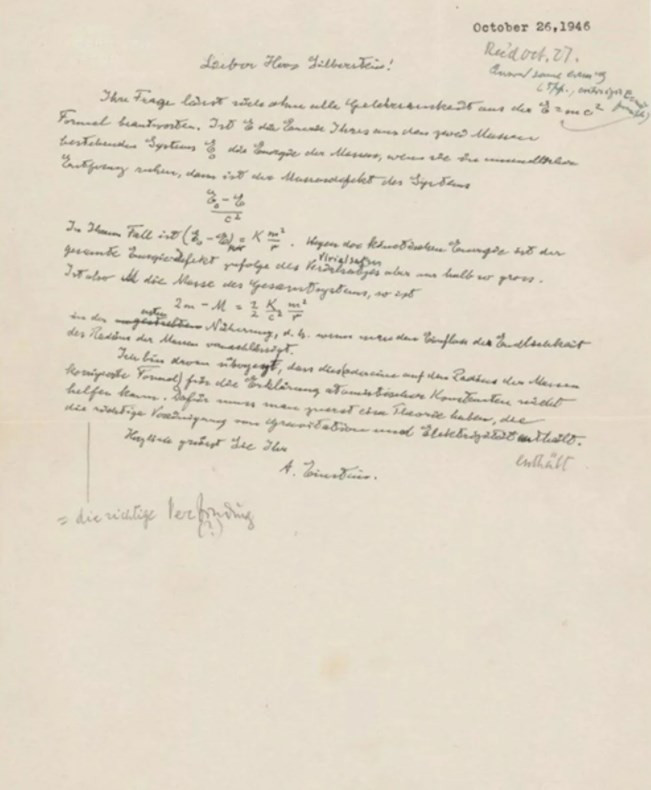 October 26, 1946
Rec'd Oct. 27.
Lieber Herr Silberstein!
Ihre Frage lässt sich ohne alle Gelehrsamkeit aus der E = mc²
Formel beantworten. Ist E die Energie Ihres aus den zwei Massen
bestehenden Systems E₀ die Energie der Massen, wenn sie in unendlicher
Entfernung ruhen, dann ist der Massendefekt des Systems
E₀ - E / c²
In Ihrem Fall ist (E₀ - E) = K m²/r . Wegen der kinetischen Energie ist der
Virialsatzes
gesamte Energiedefekt zufolge des Virialsatzes aber nur halb so gross.
Ist also M die Masse des Gesamtsystems, so ist
2m - M = 1/2 K/c² m²/r
in der ersten Näherung, d. h. wenn man den Einfluss der Endlichkeit
des Radius der Massen vernachlässigt.
Ich bin davon überzeugt, dass die(oder eine auf den Radius der Massen
korrigierte Formel) für die Erklärung atomistischer Konstanten nicht
helfen kann. Dafür muss man zuerst eine Theorie haben, die
die richtige Vereinigung von Gravitation und Elektrizität enthält.
enthält
Herzlich grüsst Sie Ihr
A. Einstein.
= die richtige Verbindung
(?)